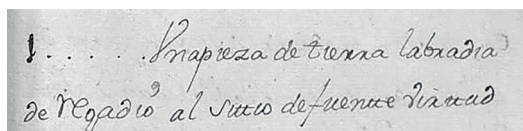 1. . . . . . Vnapieza de tierra labradia
de regadio al sitio defuente virtud